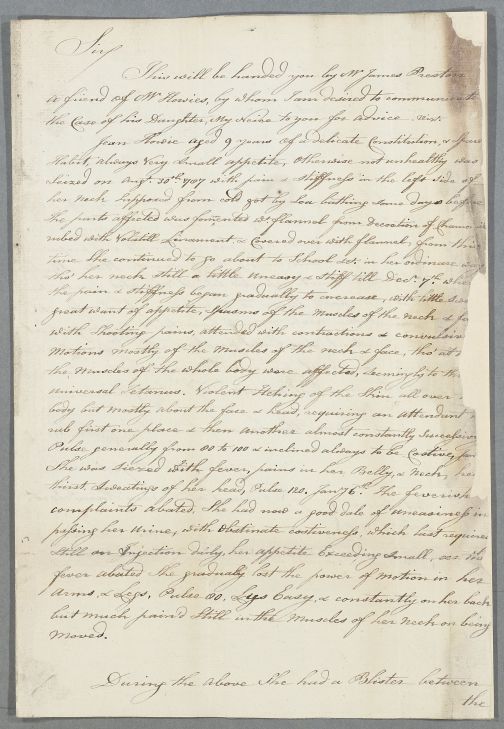 Sir
This will be handed you by Mr James Preston
a friend of Mr Howies, by whom I am desired to communicate
the Case of his Daughter, My Neice to you for advice. viz.
Jean Howie aged 9 years of a delicate Constitution, & Spare
Habit, always very small appetite, Otherwise not unhealthy was
Seized on Augt. 30th 1787 with pain & Stiffness in the left side of
her neck Supposed from cold got by Sea bathing some days before
the parts affected was fomented wt flannel from Decoction of
rubed with Volatill Linament & Covered over with flannel, from this
time She continued to go about to School &c. in her ordinary
this her neck still a little uneasy & Stiff till Decr. 7th when
the pain & Stiffness began gradually to encrease, with little
great want of appetite, Spasms of the Muscles of the Neck &
with Shooting pains, attended with contractions & convulsive
Motions mostly of the Muscles of the neck & face, tho' at
the Muscles of the whole body were affected, Seemingly to the
universal Tetanus. Violent Itching of the Skin all over
body but mostly about the face & head, requiring an attendant
rub first one place & then another almost constantly
Pulse generally from 80 to 100 & inclined always to be Costive,
She was Siezed with fever, pains in her Belly, & Neck,
thirst, Sweetings of her head, Pulse 120. the feverish
complaints abated. She had now a good dale of uneasiness in
passing her Urine, with Obstinate costiveness, which last requires
Still an Injection daily, her appetite Exceeding Small, as the
fever abated She gradually lost the power of motion in her
Arms, & Legs, Pulse 80. Lys Easy, & constantly on her back
but much pain'd Still in the Muscles of her Neck on being
Moved.
During the above She had a Blister between
the